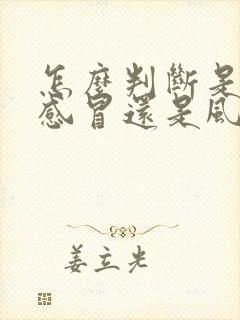 怎麼判斷是
感冒還是風
姜立光